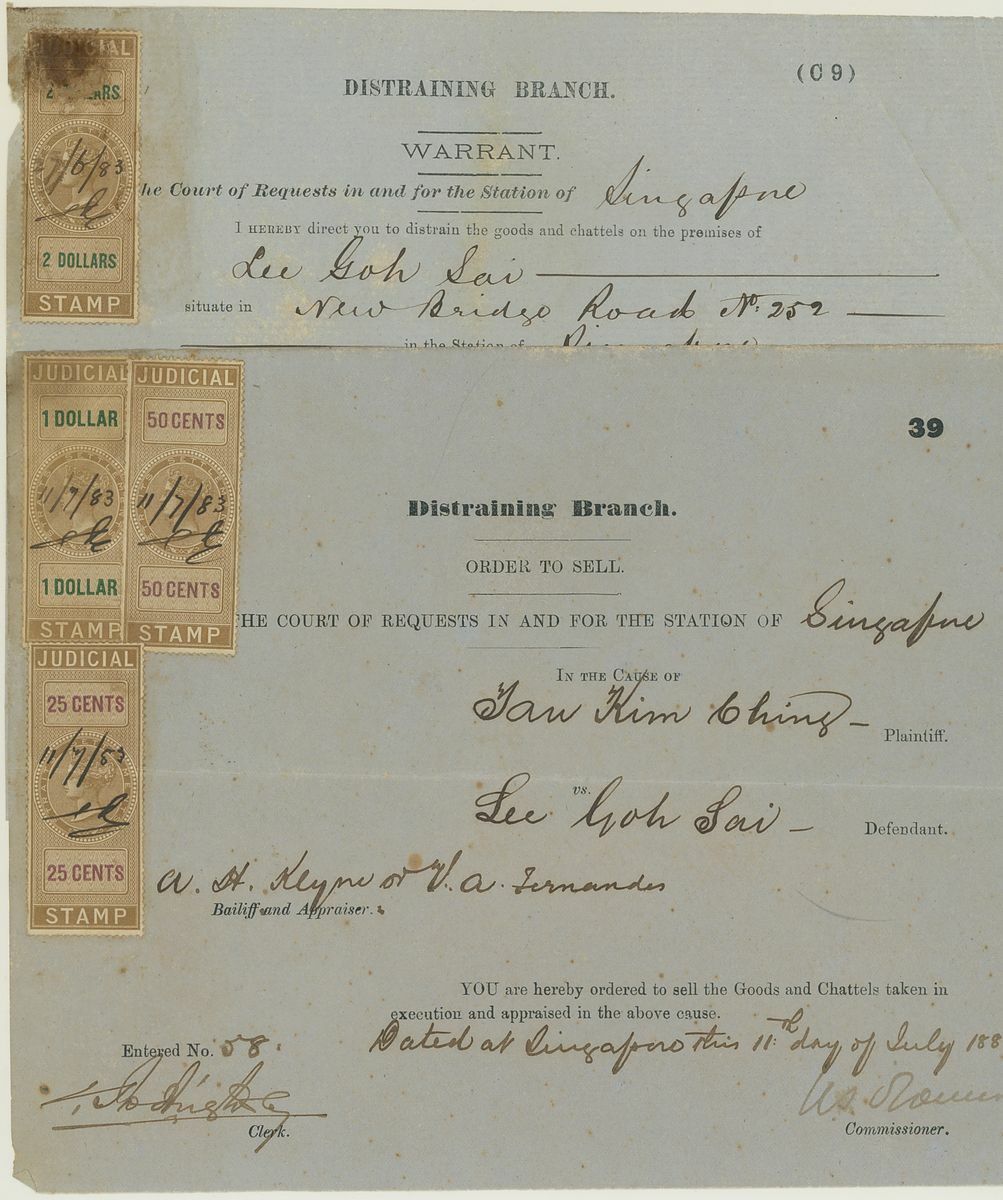 (C 9)
DISTRAINING BRANCH.
WARRANT.
he Court of Requests in and for the Station of Singapore
I HEREBY direct you to distrain the goods and chattels on the premises of
Lee Goh Sai
situate in New Bridge Road No. 252
in the Station of
JUDICIAL
2 DOLLARS
27/6/83
2 DOLLARS
STAMP
39
Distraining Branch.
ORDER TO SELL.
THE COURT OF REQUESTS IN AND FOR THE STATION OF Singapore
IN THE CAUSE OF
Tan Kim Ching
Plaintiff.
vs.
Lee Goh Sai
Defendant.
A. H. Kleyne or V. A. Fernandes
Bailiff and Appraiser.
YOU are hereby ordered to sell the Goods and Chattels taken in
execution and appraised in the above cause.
Dated at Singapore this 11th day of July 188
Entered No. 58.
Clerk.
Commissioner.
JUDICIAL
1 DOLLAR
11/7/83
1 DOLLAR
STAMP
JUDICIAL
50 CENTS
11/7/83
50 CENTS
STAMP
JUDICIAL
25 CENTS
11/7/83
25 CENTS
STAMP